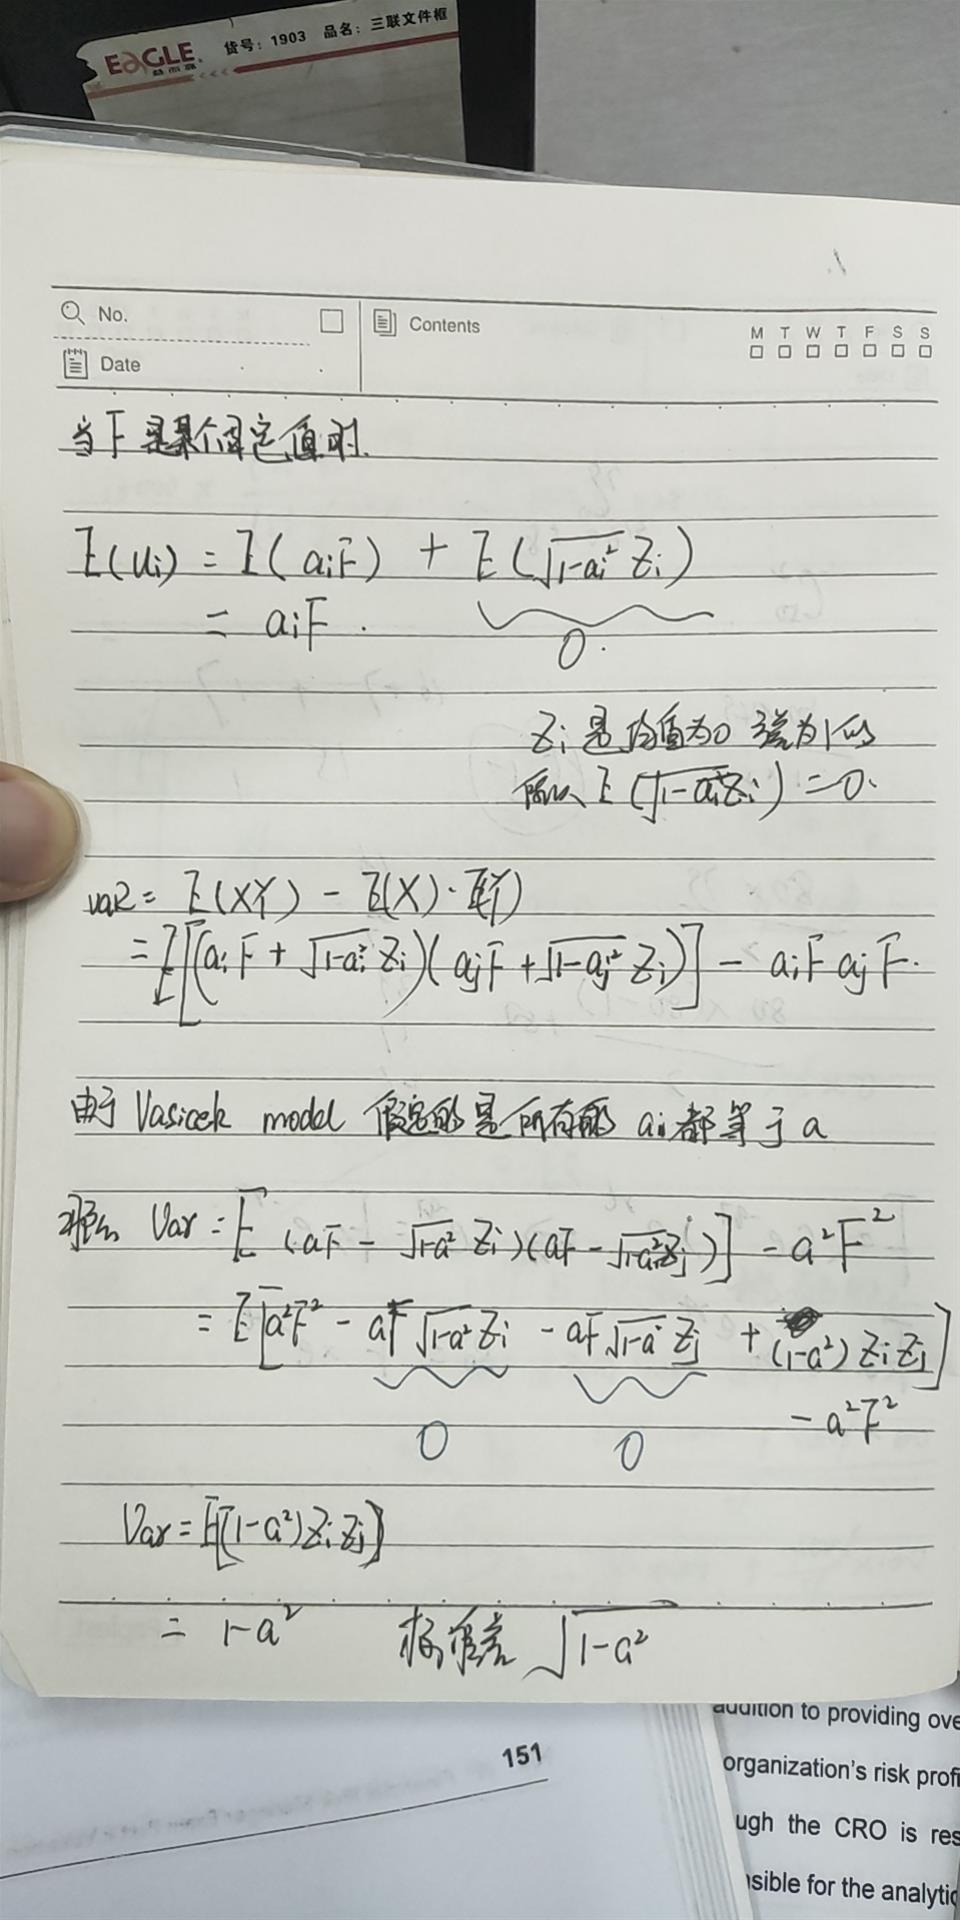 EAGLE
益而高
货号：1903 品名：三联文件框
1.
No.
Contents
M T W T F S S
Date
当F是某个固定值时.
E(Ui) = E(aiF) + E(√(1-ai²) Zi)
= aiF .
0.
Zi是均值为0 方差为1的
所以 E(√(1-ai²)Zi) = 0.
VaR = E(XY) - E(X)·E(Y)
= E[(aiF + √(1-ai²) Zi)(ajF + √(1-aj²) Zj)] - aiF ajF.
由于 Vasicek model 假定的是所有的 ai都等于a
那么 Var = E (aF - √(1-a²) Zi)(aF - √(1-a²)Zj)] - a²F²
= E[a²F² - aF√(1-a²)Zi - aF√(1-a)Zj + (1-a²)ZiZj]
- a²F²
0 0
Var = E[(1-a²)ZiZj]
= 1-a² 标准差 √(1-a²)
151
addition to providing ove
organization's risk profi
ugh the CRO is res
sible for the analytic